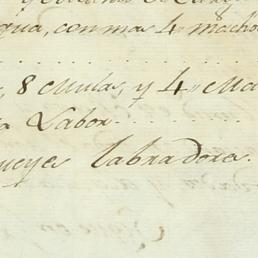 gua, con mas 4 machos
8 Mulas, y 4 Ma
Labor.
ueyes labradores.